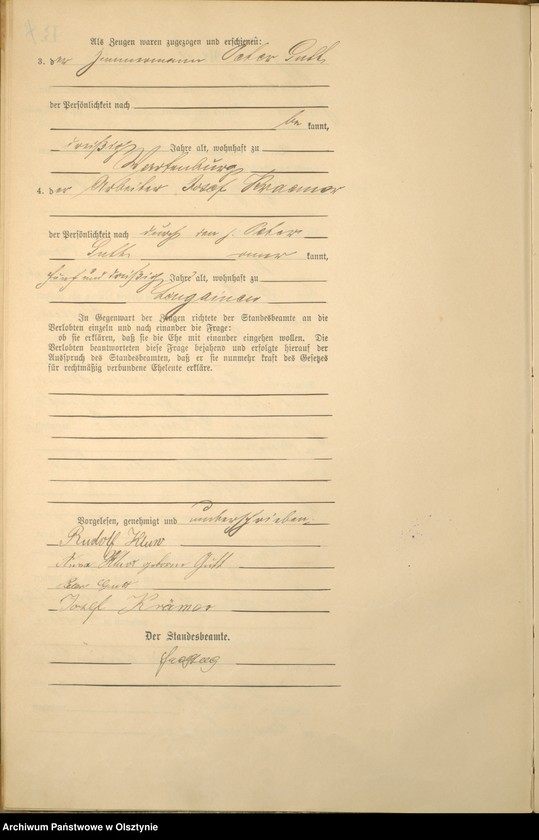 Als Zeugen waren zugezogen und erschienen:
3. der Zimmermann Peter Gutt
der Persönlichkeit nach
be kannt,
dreißig Jahre alt, wohnhaft zu
Wartenburg
4. der Arbeiter Josef Kraemer
der Persönlichkeit nach durch den p. Peter
Gutt kannt,
fünf und dreißig Jahre alt, wohnhaft zu
Lengainen
In Gegenwart der Zeugen richtete der Standesbeamte an die
Verlobten einzeln und nach einander die Frage:
ob sie erklären, daß sie die Ehe mit einander eingehen wollen. Die
Verlobten beantworteten diese Frage bejahend und erfolgte hierauf der
Ausspruch des Standesbeamten, daß er sie nunmehr kraft des Gesetzes
für rechtmäßig verbundene Eheleute erkläre.
Vorgelesen, genehmigt und unterschrieben.
Rudolf
Anna geborene Gutt
Peter Gutt
Josef Krämer
Der Standesbeamte.
Archiwum Państwowe w Olsztynie